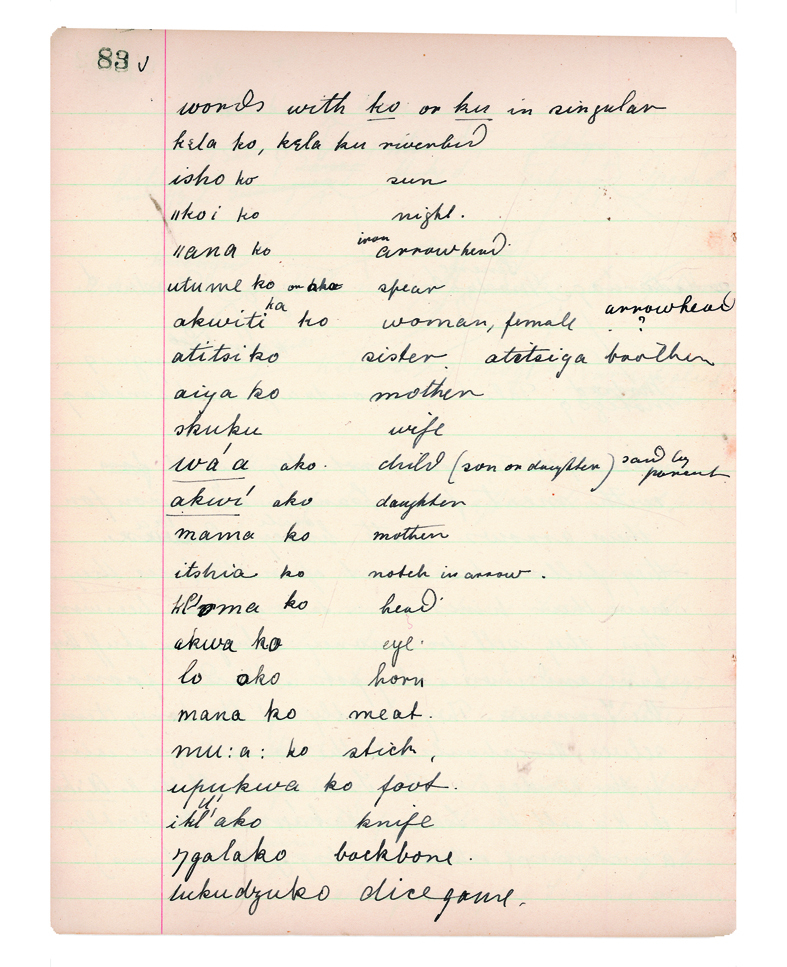 83 v
words with ko or ku in singular
kɛla ko, kɛla ku riverbed
isho ko sun
ǁkoi ko night.
ǁana ko iron arrowhead
utume ko or spear
akwiti ka ko woman, female arrowhead ?
atitsiko sister. atitsiga brother
aiya ko mother
skuku wife
wá'a ako. child (son or daughter) said by parent
akwí ako daughter
mama ko mother
itshia ko notch in arrow.
ko head
akwa ko eye.
lo ako horn
mana ko meat.
mu:a: ko stick,
upukwa ko foot.
ikl'ako knife
ŋgalako backbone.
lukudzuko dice game.